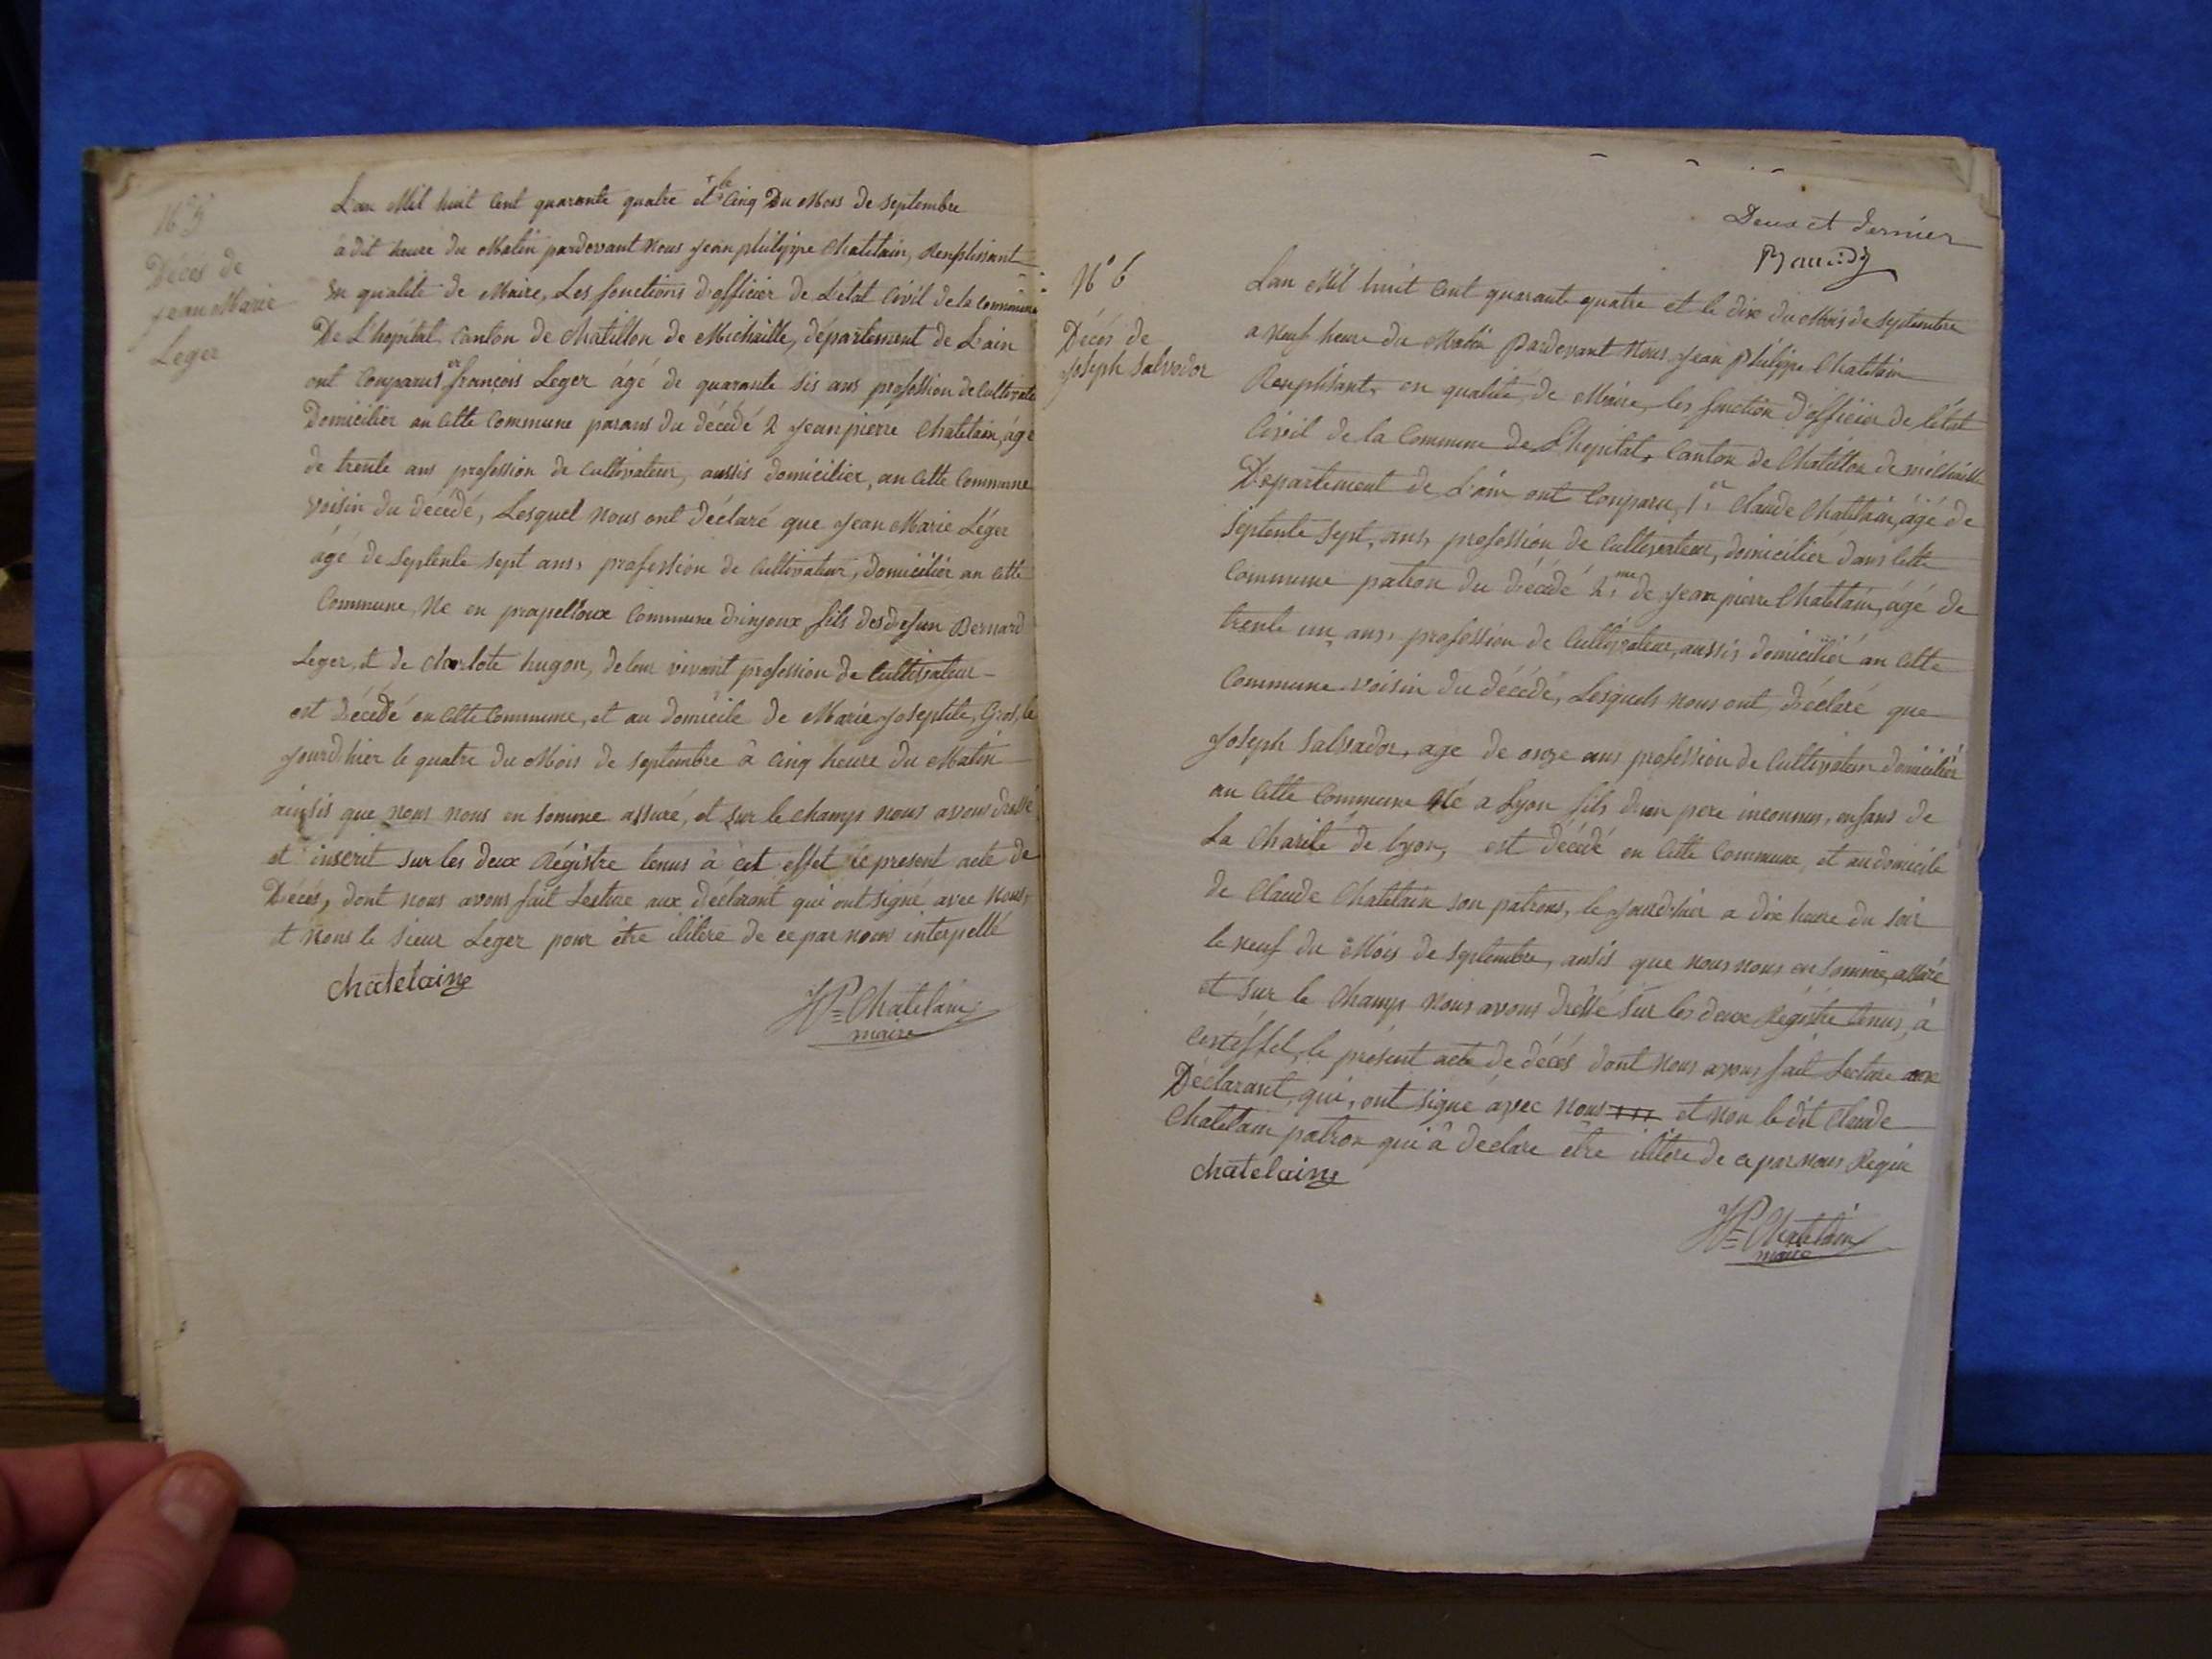 N° 5
Décés de
jean Marie
Leger
L'an Mil huit Cent quarante quatre et le Cinq Du Mois de Septembre
a dit heure du Matin pardevant Nous jean philippe Chatelain, Remplissant
En qualité de Maire, Les fonctions d'officier de L'état Civil de la Commune
De L'hopital Canton de Chatillon de Michaille, département de L'ain
ont Comparus 1er françois Leger âgé de quarante sis ans profession de Cultivate
Domicilier an Cette Commune parans du décédé 2 jean pierre Chatelain, âgé
de trente ans profession de Cultivateur, aussis domicilier, an Cette Commune
voisin du décédé, Lesquel nous ont déclaré que jean Marie Léger
âgé de Septente sept ans, profession de Cultivateur, domicilier an Cette
Commune, Né en prapelloux Commune d'injoux fils des defun Bernard
Leger, et de charlote hugon, de leur vivant profession de Cultivateur
est décédé en Cette Commune, et au domicile de Marie josephte, Gros, le
jourdhier le quatre du Mois de Septembre à Cinq heure du Matin
ainsis que nous nous en somme assuré, et sur le champs nous avons dressé
et inscrit sur les deux Régistre tenus à cet effet le present acte de
Décés, dont nous avons fait Lecture aux déclarant qui ont signé avec Nous,
et Nons le sieur Leger pour etre ilitéré de ce par nous interpellé
chatelaing
JP Chatelain
maire
Deux et dernier
N° 6
Décés de
joseph Salvador
L'an Mil huit Cent quarante quatre et le dix du Mois de Septembre
a Neuf heure du Matin Pardevant Nous jean Philippe Chatelain
Remplisant, en qualité de Maire, les fonction d'officier de l'état
Civil de la Commune de L'hopital, Canton de Chatillon de michaille
Département de L'ain ont Comparu, 1er Claude Chatelain, âgé de
Septente Sept, ans, profession de Cultivateur, domicilier dans Cette
Commune patron du décédé 2me de jean pierre Chatelain, âgé de
trente un ans, profession de Cultivateur, aussis domicilié an Cette
Commune voisin du décédé, Lesquels nous ont, déclaré que
joseph Salvador, age de onze ans profession de Cultivateur domicilier
an Cette Commune Né a Lyon fils d'un pere inconnus, enfans de
La Charité de lyon, est décédé en Cette Commune, et au domicile
de Claude Chatelain son patrons, le jourdhier a dix heure du soir
le neuf du Mois de Septembre, ansis que nous nous en somme, assuré
et sur le Champs Nous avons dressé sur les deux Régistre tenus, à
cest effet, le présent acte de décés dont Nous avons fait Lecture aux
Déclarant, qui, ont signé avec Nous et non le dit Claude
Chatelain patron qui â declare etre ilitére de ce par nous Requi
chatelaing
JP Chatelain
maire